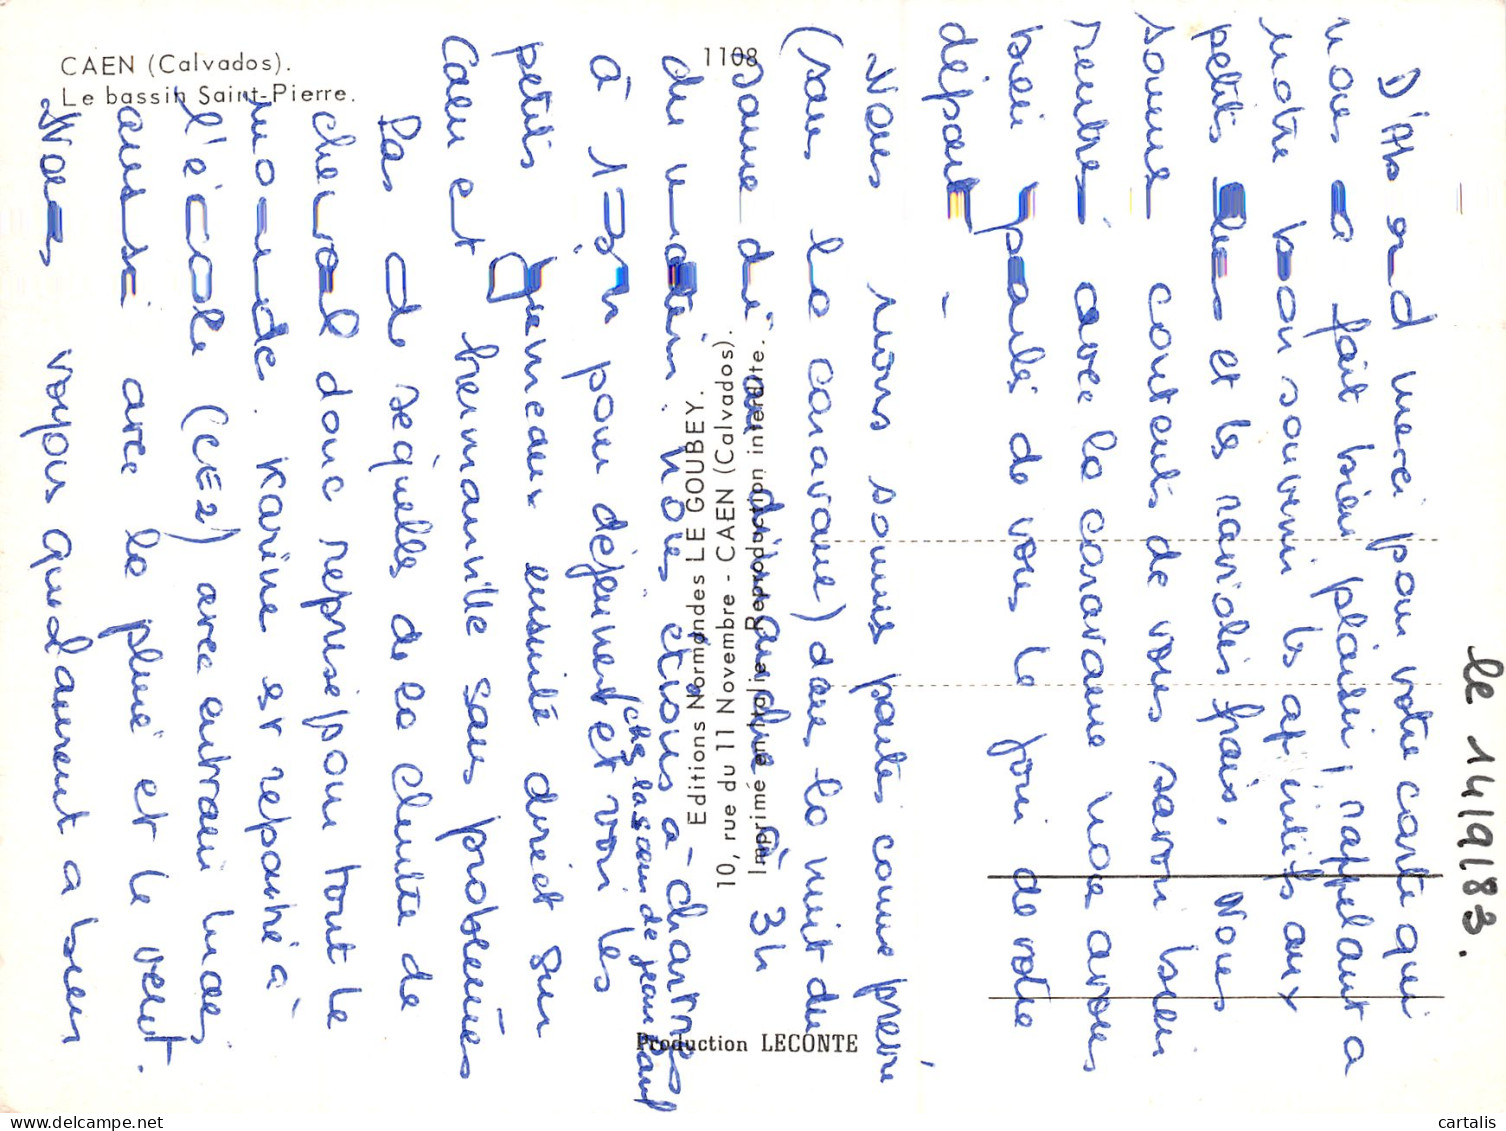 CAEN (Calvados).
Le bassin Saint-Pierre.
1108
Editions Normandes LE GOUBEY.
10, rue du 11 Novembre - CAEN (Calvados).
Imprimé en Italie. Reproduction interdite.
Production LECONTE
le 14/9/83.
D'Abord merci pour votre carte qui
nous a fait bien plaisir, rappelant à
notre bon souvenir les apéritifs aux
petits et les raviolis frais. Nous
somme contents de vous savoir bien
rentrés avec la caravane nous avons
bien parlé de vous le jour de votre
départ -
Nous nous sommes partis comme prévu
(sans la caravane) dans la nuit du
samedi au dimanche à 3h
du matin. nous étions à Chartres
à 13h pour déjeuner et voir les
(chez la soeur de jean Paul
petits jumeaux ensuite direct sur
Caen et hermanville sans problèmes
Pas de séquelles de la chute de
cheval donc reprise pour tout le
monde. Karine est repartie à
l'école (CE2) avec entrain nous
aussi avec la pluie et le vent.
Nous voyons que Laurent a bien